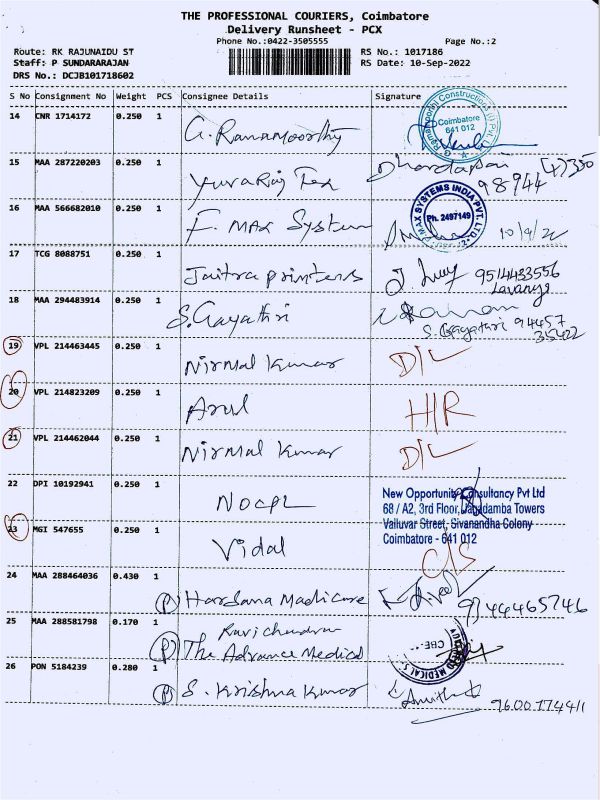 THE PROFESSIONAL COURIERS, Coimbatore
Delivery Runsheet - PCX
Phone No.:0422-3505555
Page No.:2
Route: RK RAJUNAIDU ST
RS No.: 1017186
Staff: P SUNDARARAJAN
RS Date: 10-Sep-2022
DRS No.: DCJB101718602
S No Consignment No Weight PCS Consignee Details Signature
14 CNR 1714172 0.250 1 G. Ramamoorthy
Ramamoorthy Constructions (I) Pvt. Coimbatore 641 012
15 MAA 287220203 0.250 1 Yuvaraj Tex 98944
16 MAA 566682010 0.250 1 F. MAX System 10/9/22
MAX SYSTEMS INDIA PVT. LTD. Ph. 2497149
17 TCG 8088751 0.250 1 Jaitra printers 9514433556
Lavanya
18 MAA 294483914 0.250 1 S. Gayathri
S. Gayathri 94457
35422
19 VPL 214463445 0.250 1 Nirmal Kumar D/L
20 VPL 214823209 0.250 1 Arul H/R
21 VPL 214462044 0.250 1 Nirmal Kumar D/L
22 DPI 10192941 0.250 1 NOCPL
New Opportunity Consultancy Pvt Ltd
68 / A2, 3rd Floor, Jagadamba Towers
Valluvar Street, Sivanandha Colony
Coimbatore - 641 012
23 MGI 547655 0.250 1 Vidal C/S
24 MAA 288464036 0.430 1 (P) Hardana Madicare 9144465746
25 MAA 288581798 0.170 1 Ravichandran
(P) The Advance Medics
CBE
26 PON 5184239 0.280 1 (P) S. Krishna Kumar